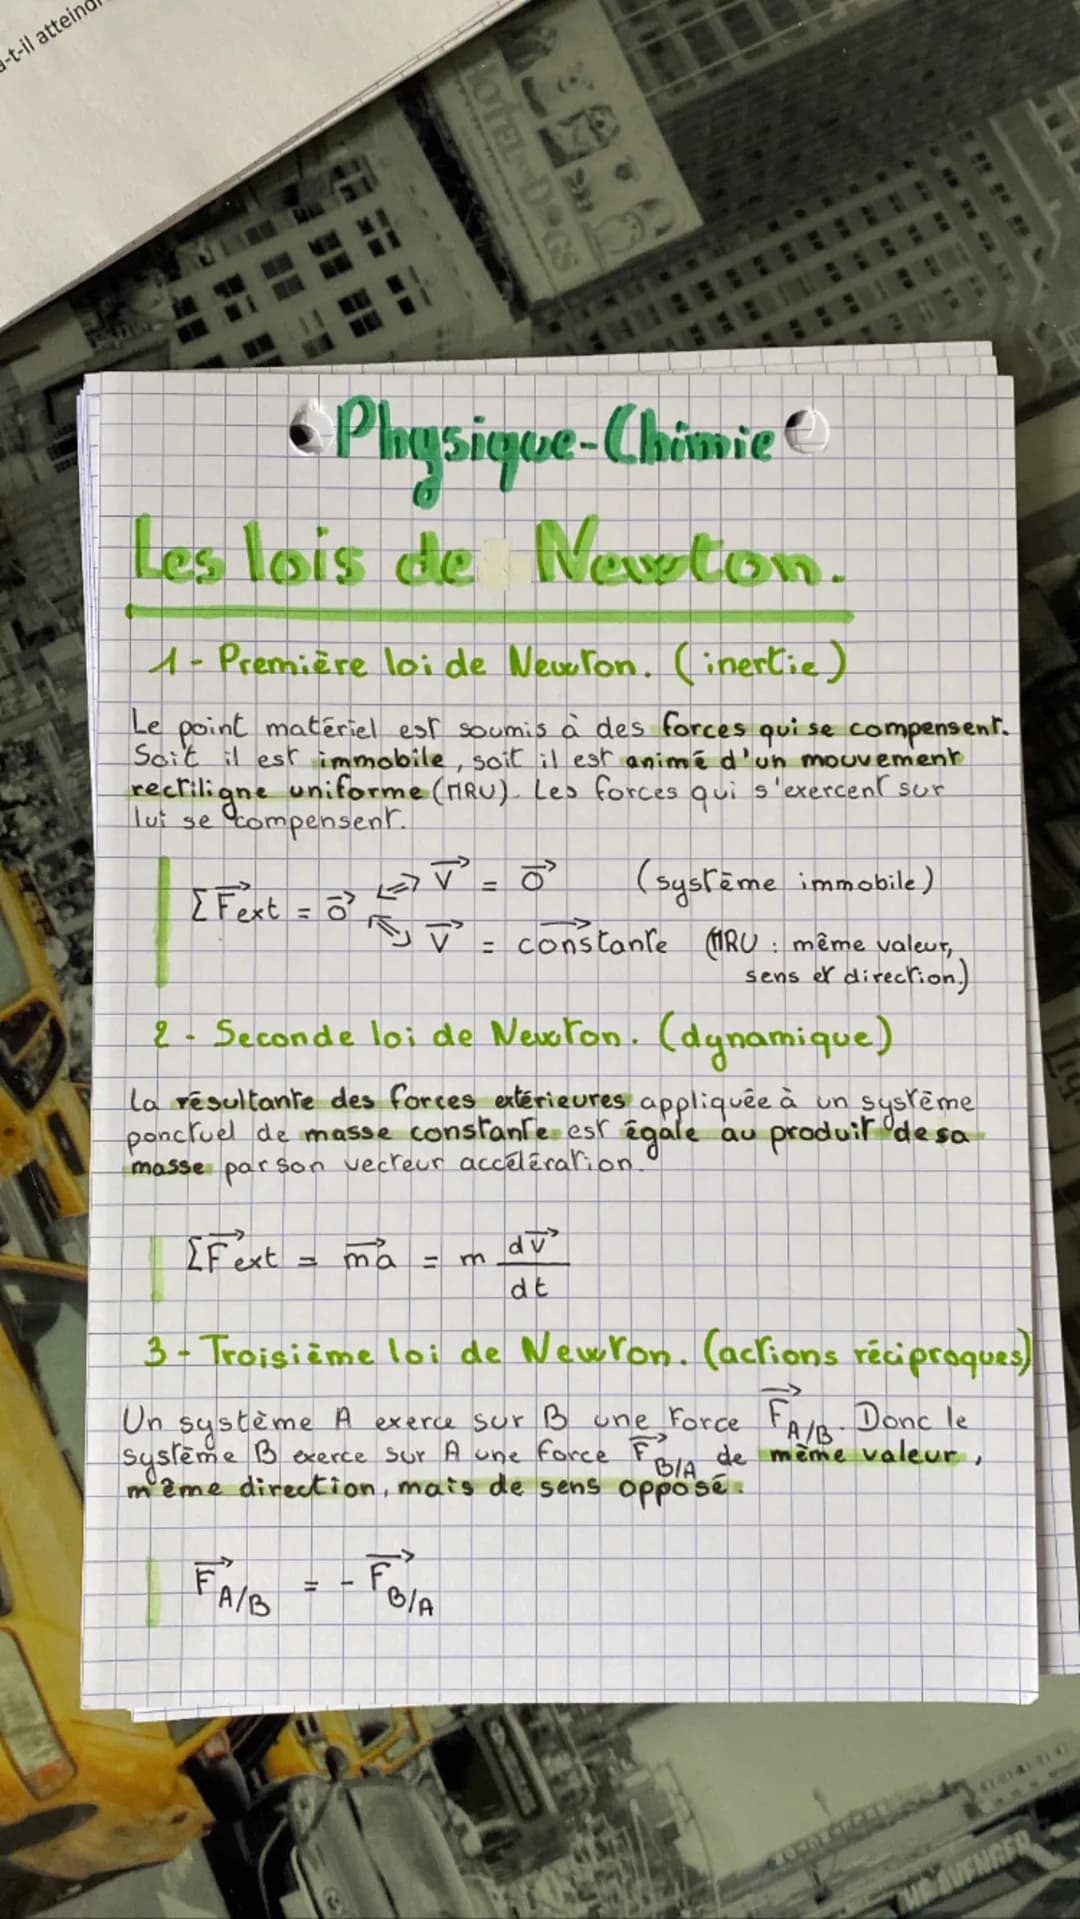 -t-il atteind
HOTEL-DOGS
Physique-Chimie
Les lois de Newton.
1- Première loi de Newton. (inertie)
Le point matériel est soumis à des forces qui se compensent.
Soit il est immobile, soit il est animé d'un mouvement
rectiligne uniforme (MRU). Les forces qui s'exercent sur
lui se compensent.
Σ F⃗ext = 0⃗ <=> v⃗ = 0⃗ (système immobile)
<=> v⃗ = constante (MRU : même valeur,
sens et direction.)
2 - Seconde loi de Newton. (dynamique)
La résultante des forces extérieures appliquée à un système
ponctuel de masse constante est égale au produit de sa
masse par son vecteur accélération.
ΣF⃗ext = ma⃗ = m dv⃗/dt
3 - Troisième loi de Newton. (actions réciproques)
Un système A exerce sur B une Force F⃗A/B. Donc le
système B exerce sur A une force F⃗B/A de même valeur,
même direction, mais de sens opposé.
F⃗A/B = - F⃗B/A